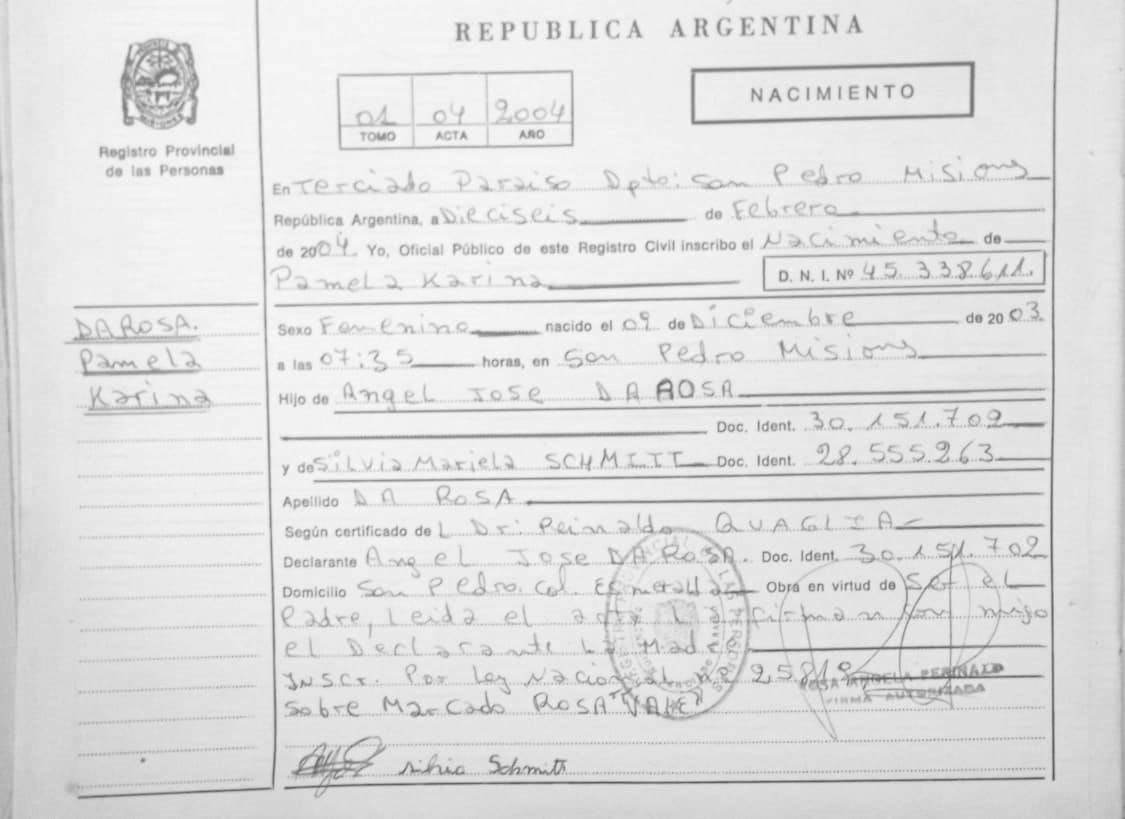 REPUBLICA ARGENTINA
NACIMIENTO
01 04 2004
TOMO ACTA AÑO
Registro Provincial
de las Personas
En Terciado Paraiso Dpto: San Pedro Misions
República Argentina, a Dieciseis de Febrero
de 2004. Yo, Oficial Público de este Registro Civil inscribo el Nacimiento de
Pamela Karina D. N. I. Nº 45.338.611.
DA ROSA.
Pamela
Karina
Sexo Femenino nacido el 09 de Diciembre de 2003
a las 07:35 horas, en San Pedro Misions
Hijo de Angel Jose DA ROSA
Doc. Ident. 30.151.702
y de Silvia Mariela SCHMITT Doc. Ident. 28.555.263
Apellido DA ROSA
Según certificado del Dr. Reinaldo QUAGLIA
Declarante Angel Jose DA ROSA. Doc. Ident. 30.151.702
Domicilio San Pedro. Col. Esmeralda Obra en virtud de Ser el
Padre, Leida el acta firman
el Declarante La Madre
INSCR. Por Ley Nacional Nº 25819
Sobre Marcado ROSA "VALE"
FIRMA AUTORIZADA
Silvia Schmitt